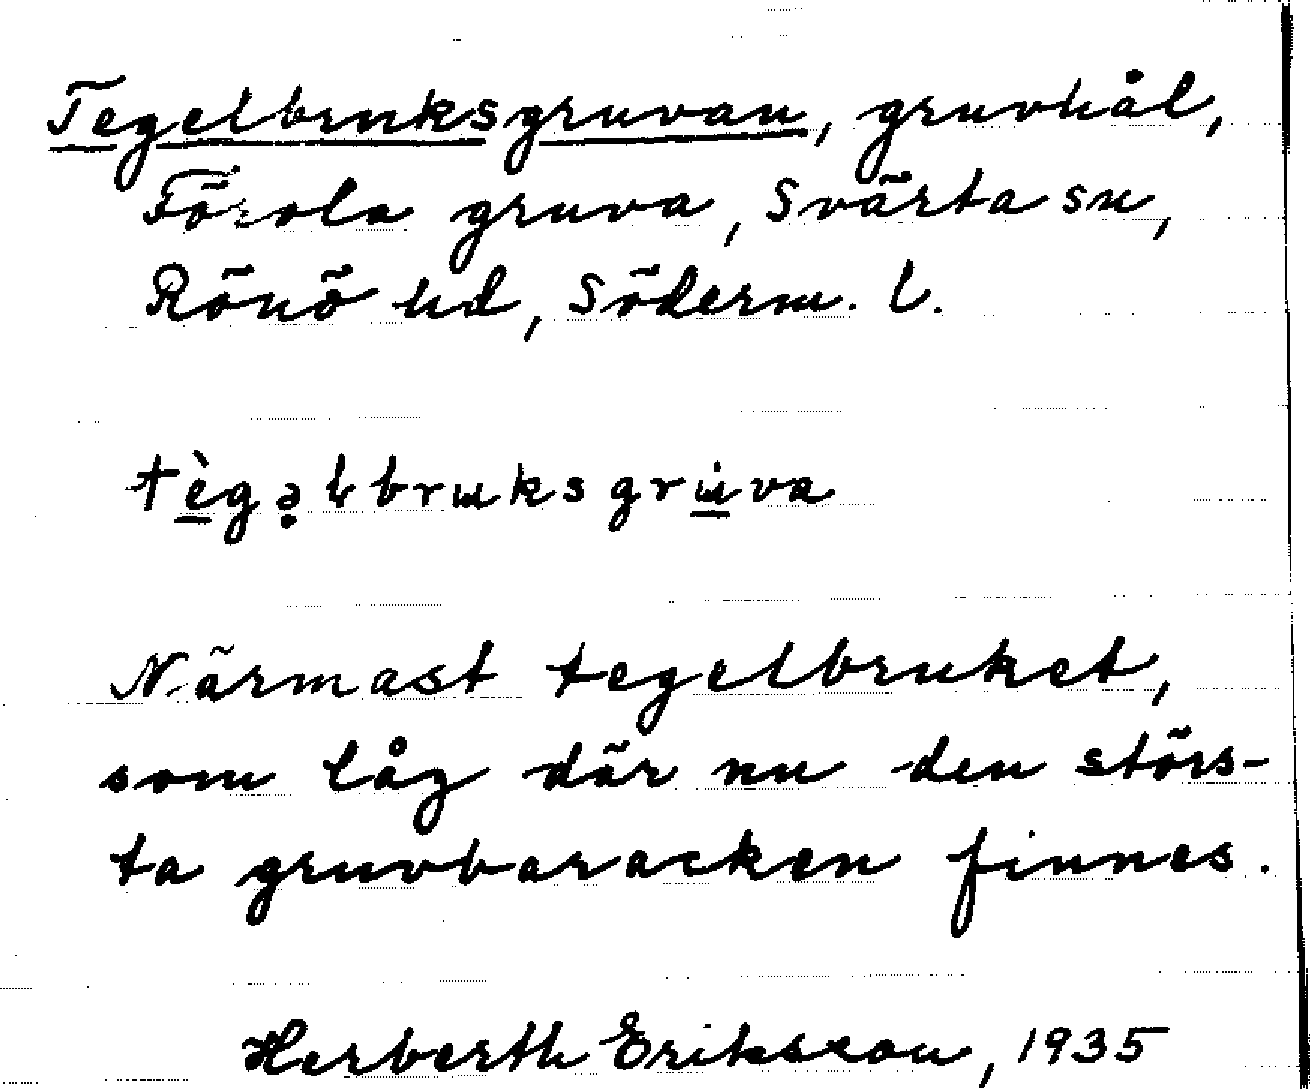 Tegelbruksgruvan, gruvhål,
Förola gruva, Svärta sn,
Rönö hd, Söderm. l.
tègə̣ɫbrɯksgrɯ̇va
Närmast tegelbruket,
som låg där nu den störs-
ta gruvbaracken finnes.
Herberth Eriksson, 1935